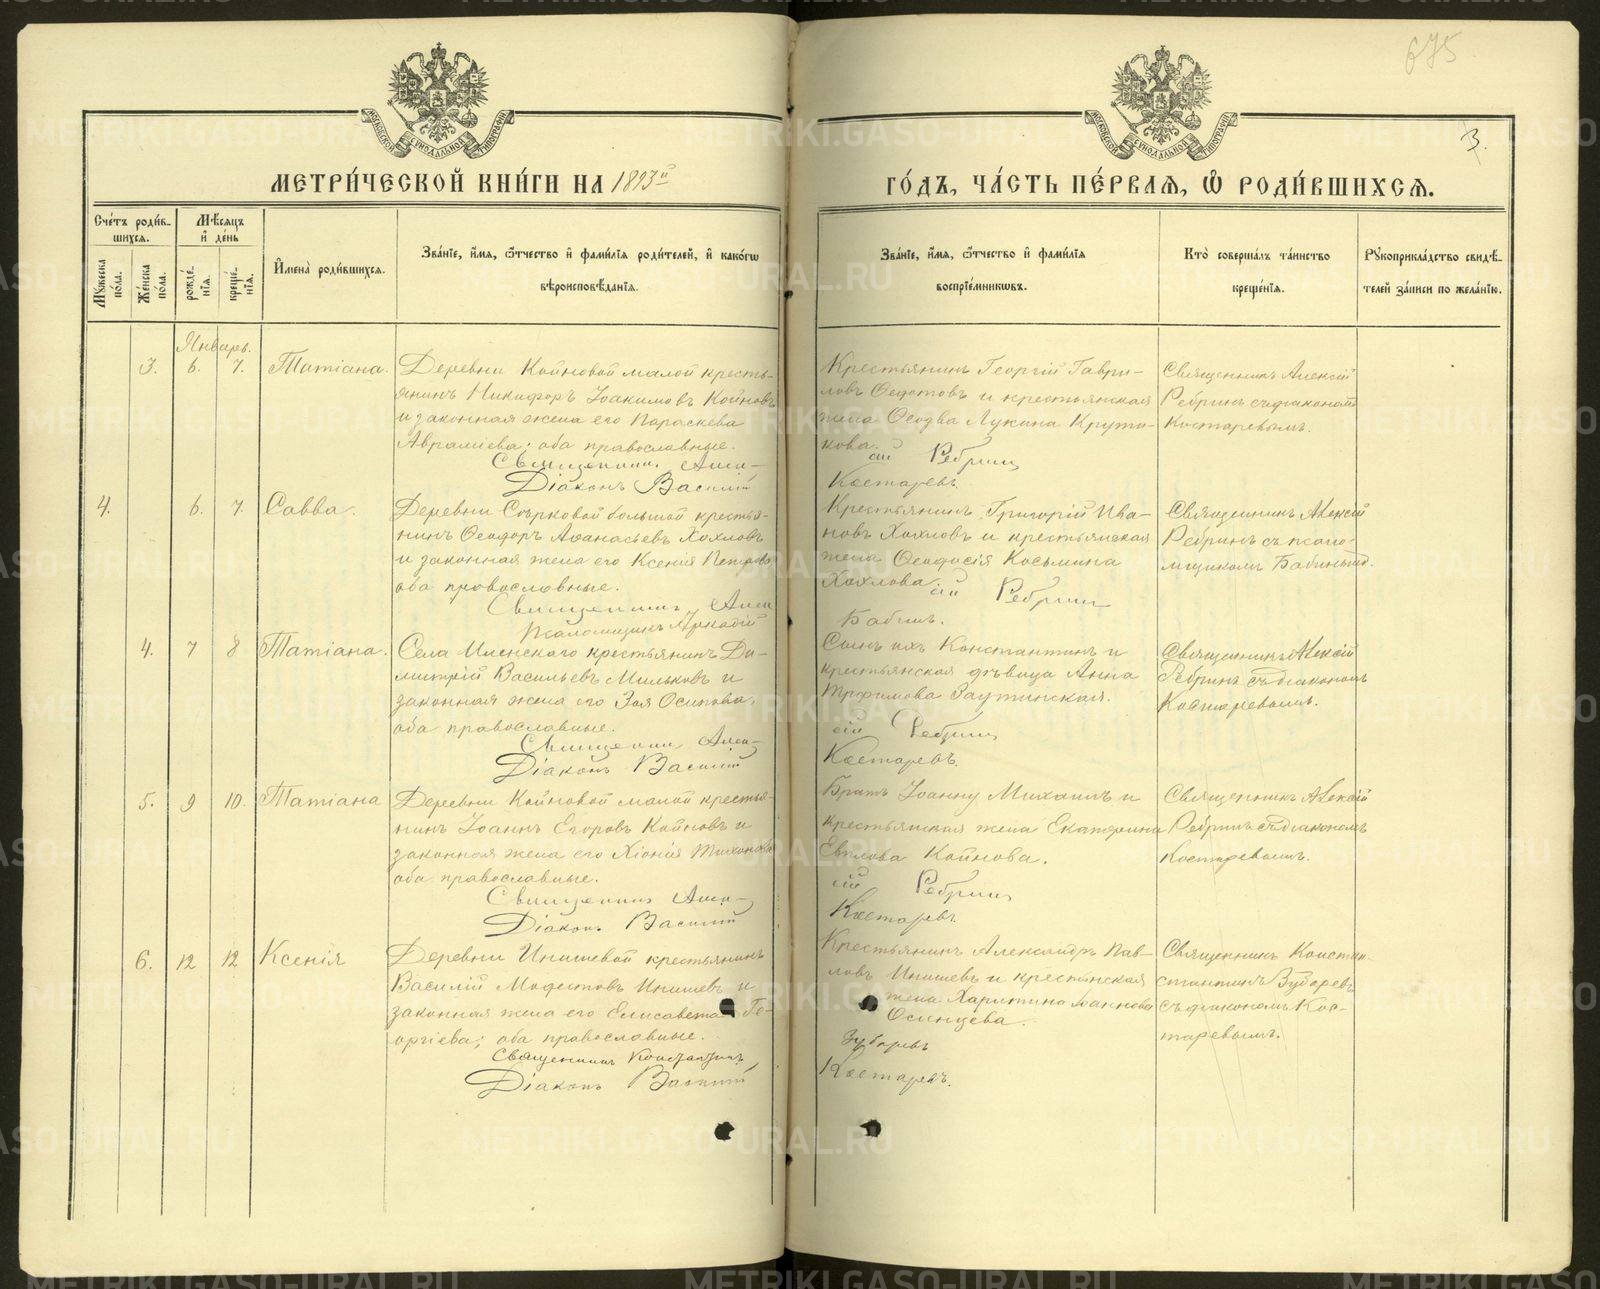 675
3.
МОСКОВСКОЙ СѴНОДАЛЬНОЙ ТИПОГРАФІИ
МОСКОВСКОЙ СѴНОДАЛЬНОЙ ТИПОГРАФІИ
МЕТРИ́ЧЕСКОЙ КНИ́ГИ НА 1893й
ГО́ДЪ, ЧА́СТЬ ПЕ́РВАѦ, Ѿ РОДИ́ВШИХСѦ.
Сче́тъ роди́в-
шихсѧ.
Мѣ́сѧцъ
и҆ де́нь
Му́жеска по́ла.
Же́нска по́ла.
рожде́нїѧ.
креще́нїѧ.
И҆мена̀ роди́вшихсѧ.
Зва́нїе, и҆́мѧ, ѻ҆́тчество и҆ фами́лїѧ роди́телей, и҆ како́гѡ
вѣроисповѣ́данїѧ.
Зва́нїе, и҆́мѧ, ѻ҆́тчество и҆ фами́лїѧ
воспрїе́мникѡвъ.
Кто̀ соверша́лъ та́инство
креще́нїѧ.
Рꙋкоприкла́дство свидѣ́-
телей за́писи по жела́нїю.
Январь.
3. 6. 7. Татіана.
Деревни Койновой малой кресть-
янинъ Никифоръ Іоакимовъ Койновъ
и законная жена его Параскева
Авраміева; оба православные.
Священник Алек-
Діаконъ Василій
Крестьянинъ Георгій Гаври-
ловъ Ѳедотовъ и крестьянская
жена Лукина Крути-
кова.
сій Ребрин
Костаревъ.
Священникъ Алексій
Ребринъ съ діакономъ
Костаревымъ.
4. 6. 7. Савва.
Деревни большой крестья-
нинъ Ѳеодоръ Аѳанасьевъ Хохловъ
и законная жена его Ксенія Петрова
оба православные.
Священник Алек
Псаломщикъ Аркадій
Крестьянинъ Григорій Ива-
новъ Хохловъ и крестьянская
жена Ѳеодосія Косьмина
Хохлова.
сій Ребрин
Бабин.
Священникъ Алексій
Ребринъ съ псало-
мщикомъ Бабинымъ.
4. 7 8 Татіана.
Села Иленскаго крестьянинъ Ди-
митрій Васильевъ Мильковъ и
законная жена его Зоя Осипова,
оба православные.
Священник Алек-
Діаконъ Василій
Сынъ ихъ Константинъ и
крестьянская дѣвица Анна
Трофимова Заутинская.
сій Ребрин
Костаревъ.
Священникъ Алексій
Ребринъ съ діакономъ
Костаревымъ.
5. 9 10. Татіана
Деревни Койновой малой крестья-
нинъ Іоаннъ Егоровъ Койновъ и
законная жена его Хіонія Тихонова
оба православные.
Священник Алек-
Діаконъ Василій
Братъ Іоанну Михаилъ и
крестьянская жена Екатерина
Койнова.
сій Ребрин
Костаревъ.
Священникъ Алексій
Ребринъ съ діакономъ
Костаревымъ.
6. 12 12 Ксенія
Деревни Инишевой крестьянинъ
Василій Модестовъ Инишевъ и
законная жена его Елисавета Ге-
оргіева; оба православные.
Священникъ Константинъ
Діаконъ Василій
Крестьянинъ Александръ Пав-
ловъ Инишевъ и крестьянская
жена Харитина Іоаннова
Осинцева.
Зубаревъ
Костаревъ.
Священникъ Констан-
стантинъ Зубаревъ
съ діакономъ Кос-
таревымъ.
METRIKI.GASO-URAL.RU